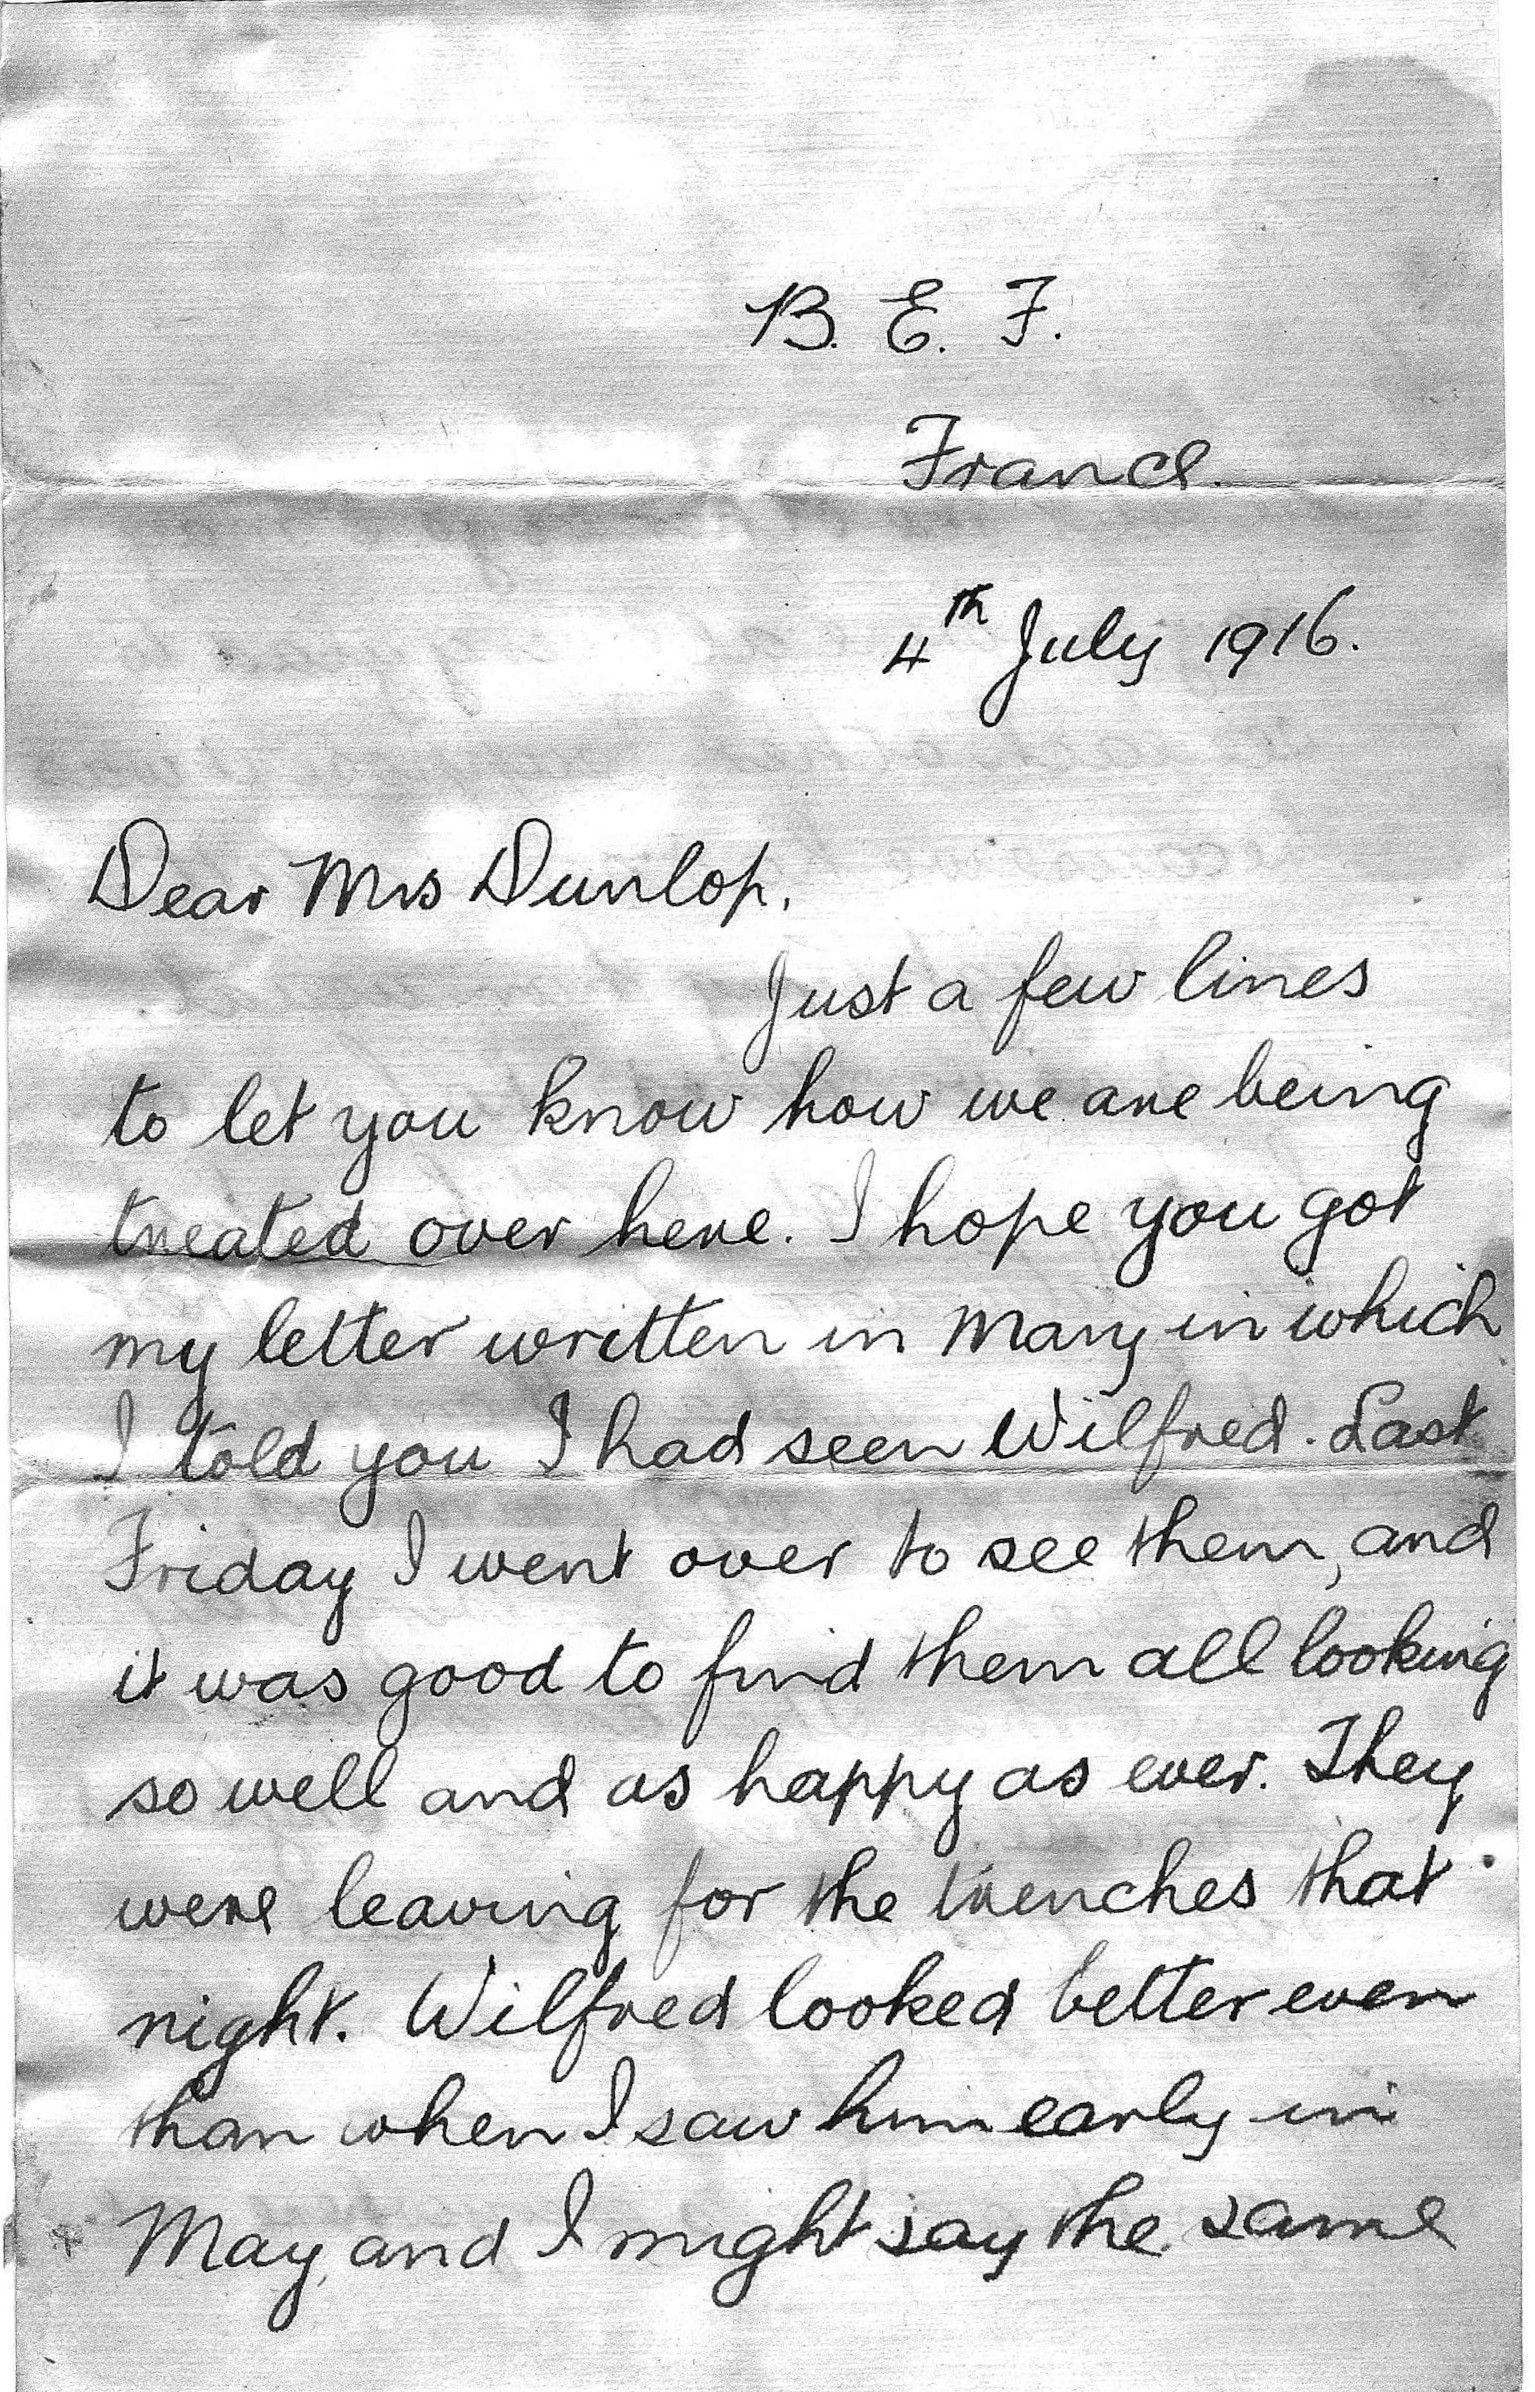 B. E. F.
France.
4th July 1916.
Dear Mrs Dunlop,
Just a few lines
to let you know how we are being
treated over here. I hope you got
my letter written in Many in which
I told you I had seen Wilfred. Last
Friday I went over to see them, and
it was good to find them all looking
so well and as happy as ever. They
were leaving for the trenches that
night. Wilfred looked better even
than when I saw him early in
May, and I might say the same